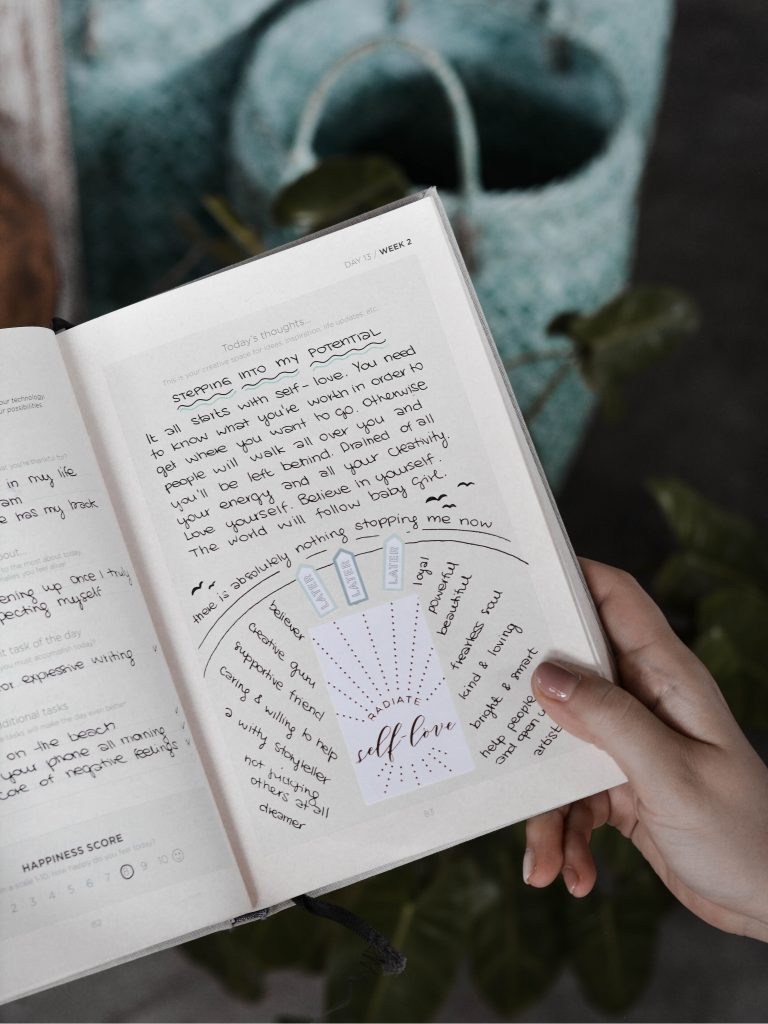 our technology,
ur possibilities.
you're thankful for?
in my life
am
e has my back
out...
to the most about today,
makes you feel alive!
ening up once I truly
pecting myself
t task of the day
you must accomplish today?
or expressive writing
ditional tasks
tasks will make the day even better
on the beach
your phone all morning
core of negative feelings
HAPPINESS SCORE
a scale 1-10, how happy do you feel today?
2 3 4 5 6 7 8 9 10
82
DAY 13 / WEEK 2
Today's thoughts...
This is your creative space for ideas, inspiration, life updates, etc.
STEPPING INTO MY POTENTIAL
It all starts with self-love. You need
to know what you're worth in order to
get where you want to go. Otherwise
people will walk all over you and
you'll be left behind. Drained of all
your energy and all your creativity.
Love yourself. Believe in yourself.
The world will follow baby girl.
there is absolutely nothing stopping me now
LATER
LATER
LATER
believer
creative guru
supportive friend
caring & willing to help
a witty storyteller
not judging
others at all
dreamer
RADIATE
self-love
loyal
powerful
beautiful
fearless soul
kind & loving
bright & smart
help people
and open
artist
83